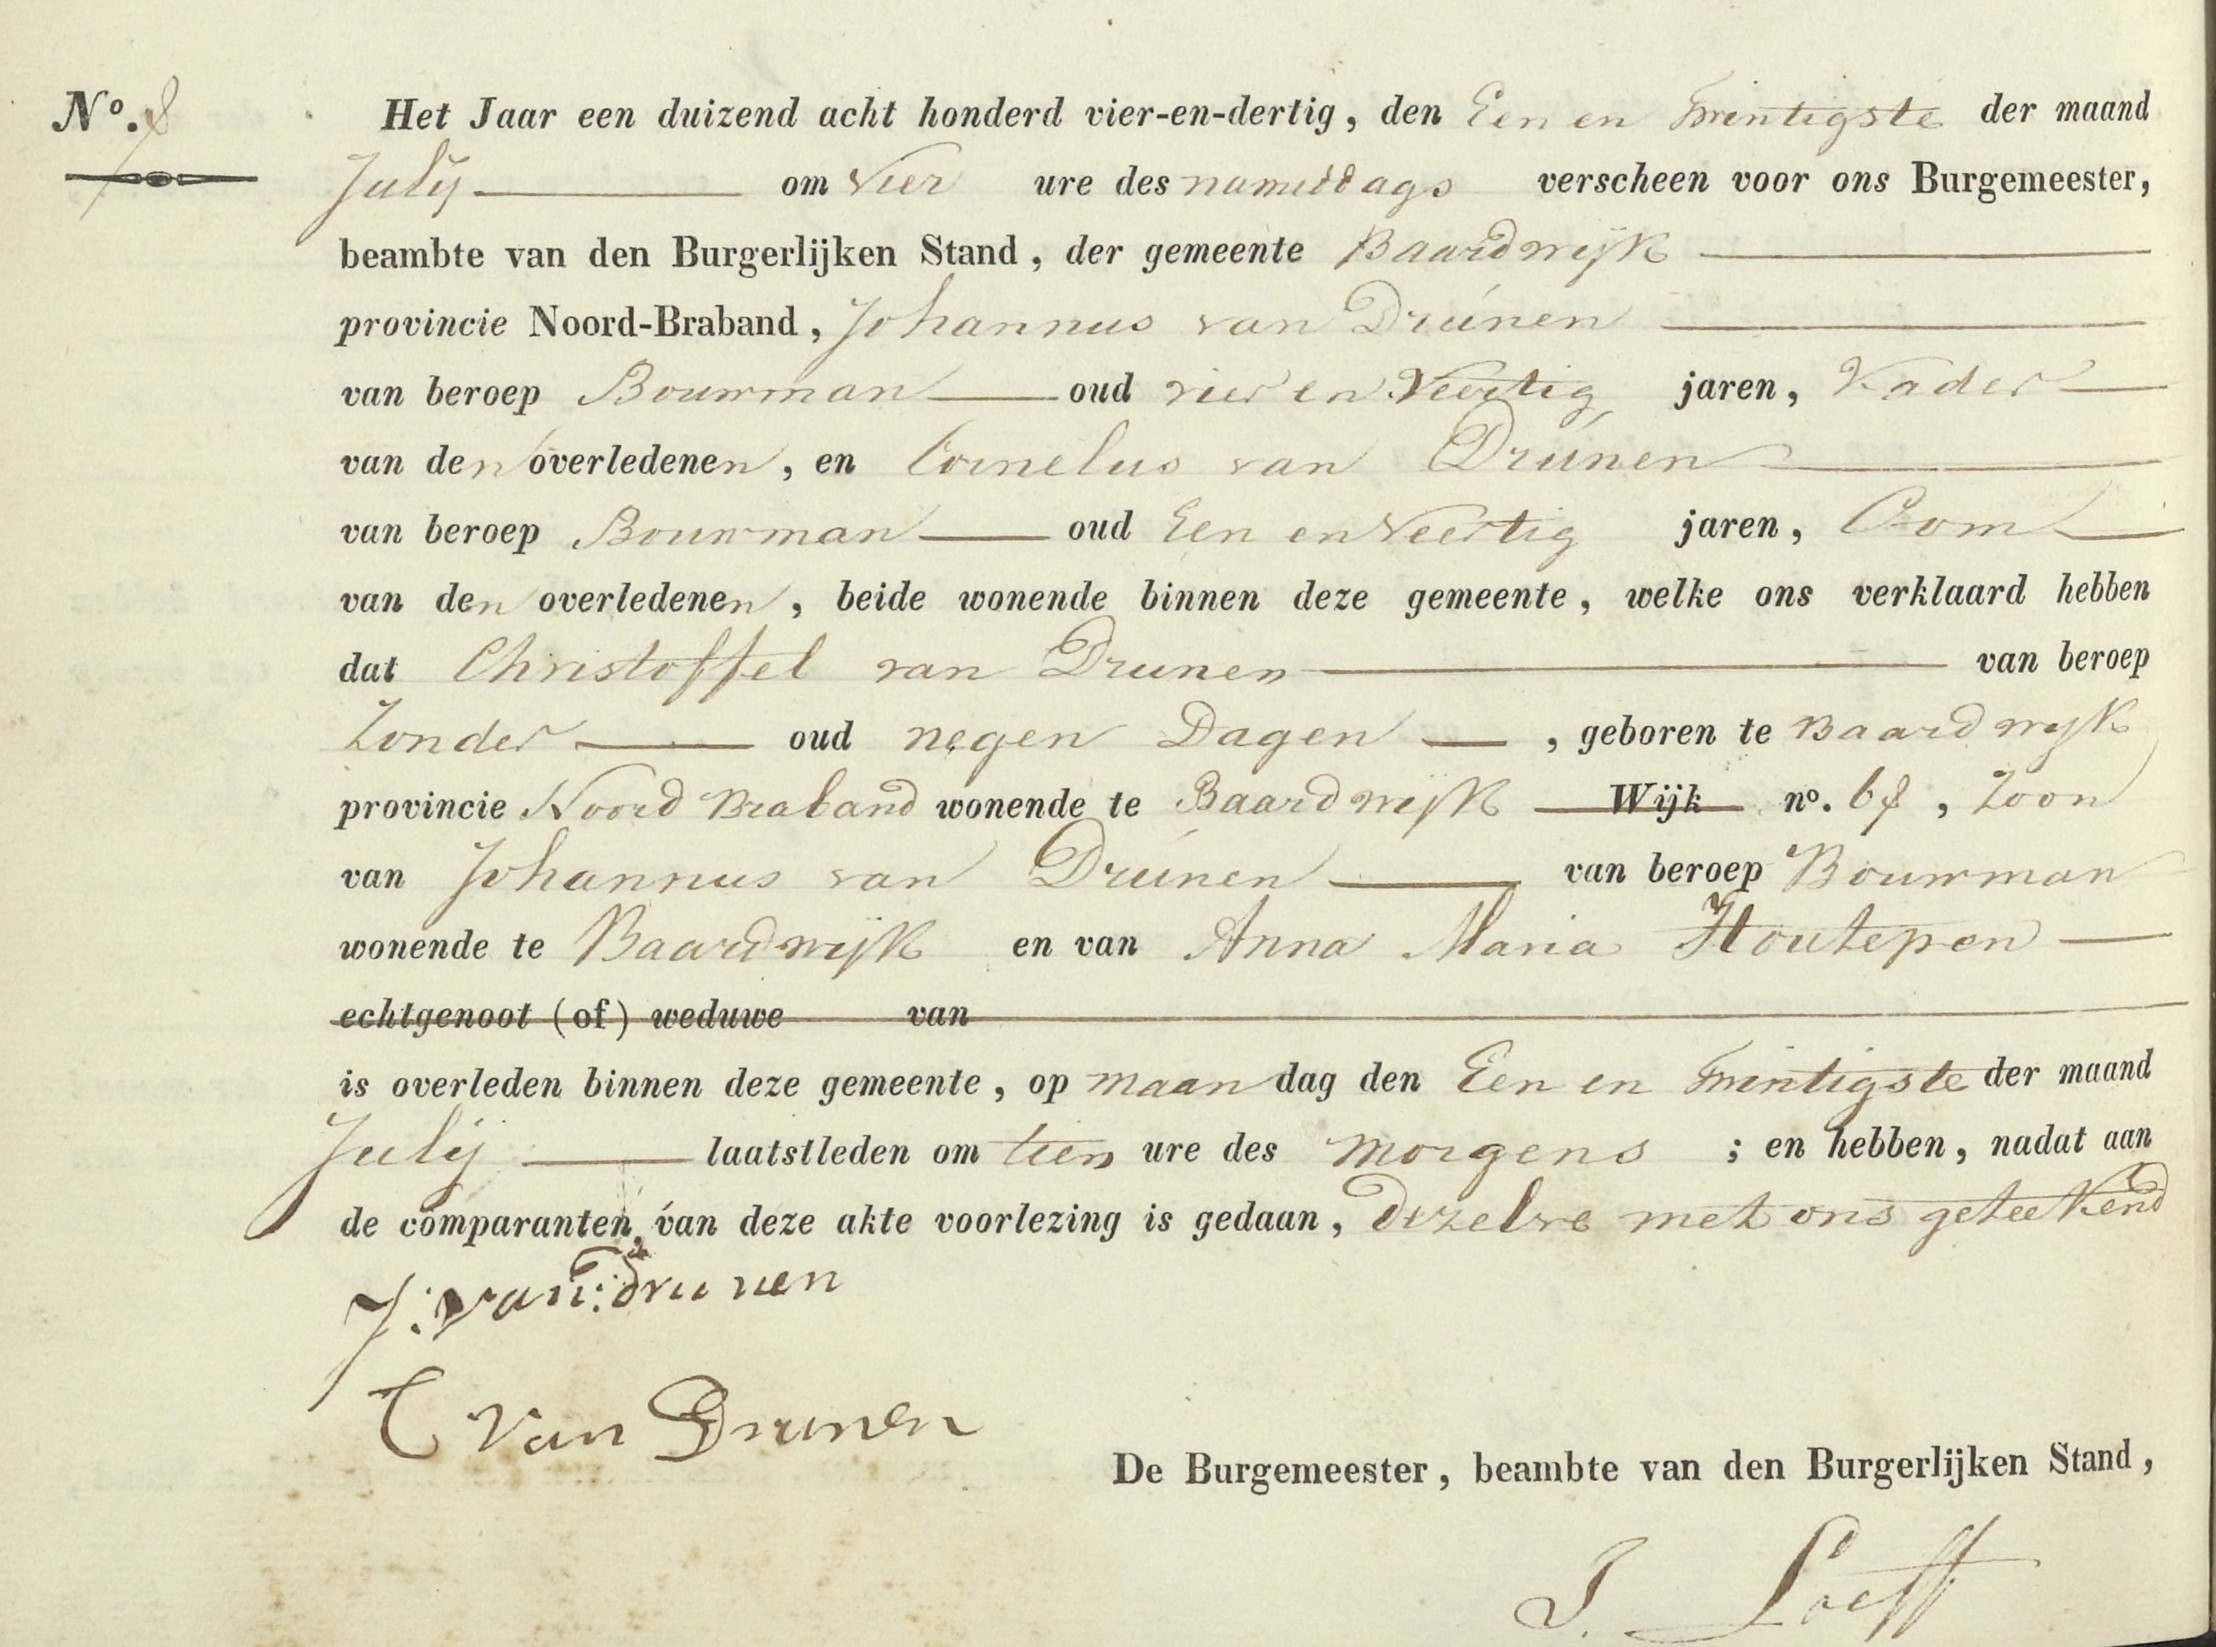 N°. 8
Het Jaar een duizend acht honderd vier-en-dertig, den Een en Twintigste der maand
July om Vier ure des namiddags verscheen voor ons Burgemeester,
beambte van den Burgerlijken Stand, der gemeente Baardwijk
provincie Noord-Braband, Johannus van Drúnen
van beroep Bouwman oud vier en Veertig jaren, Vader
van den overledenen, en Cornelus van Drúnen
van beroep Bouwman oud Een en Veertig jaren, Oom
van den overledenen, beide wonende binnen deze gemeente, welke ons verklaard hebben
dat Christoffel van Drunen van beroep
Zonder oud negen Dagen, geboren te Baardwijk
provincie Noord Braband wonende te Baardwijk Wijk n°. , Zoon
van Johannus van Drúnen van beroep Bouwman
wonende te Baardwijk en van Anna Maria Houtepen
echtgenoot (of) weduwe van
is overleden binnen deze gemeente, op maandag den Een en Twintigste der maand
July laatstleden om tien ure des morgens; en hebben, nadat aan
de comparanten, van deze akte voorlezing is gedaan, dezelve met ons geteekend
J: van: Drunen
C Van Drunen
De Burgemeester, beambte van den Burgerlijken Stand,
J. Loeff